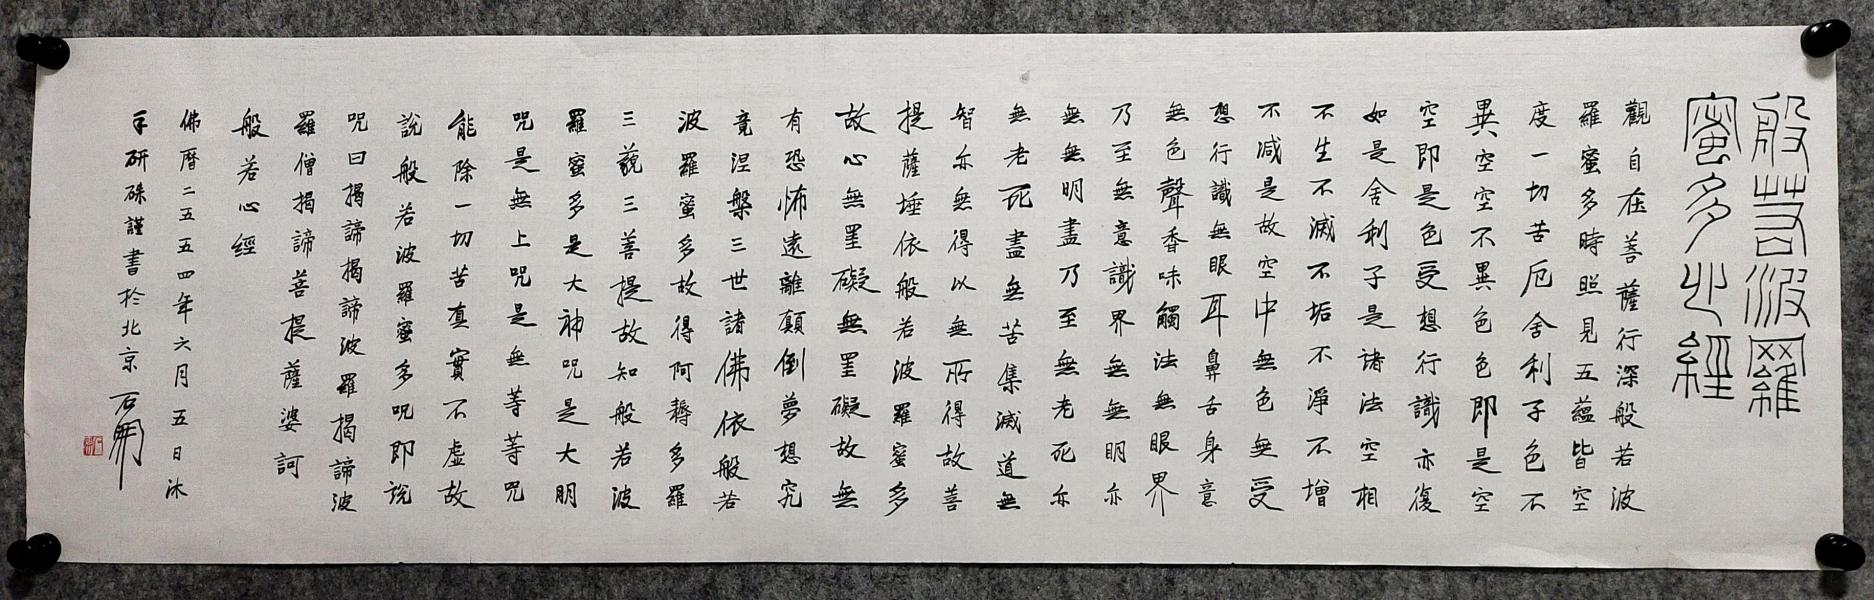 般若波羅
蜜多心經
觀自在菩薩行深般若波
羅蜜多時照見五蘊皆空
度一切苦厄舍利子色不
異空空不異色色即是空
空即是色受想行識亦復
如是舍利子是諸法空相
不生不滅不垢不淨不增
不減是故空中無色無受
想行識無眼耳鼻舌身意
無色聲香味觸法無眼界
乃至無意識界無無明亦
無無明盡乃至無老死亦
無老死盡無苦集滅道無
智亦無得以無所得故菩
提薩埵依般若波羅蜜多
故心無罣礙無罣礙故無
有恐怖遠離顛倒夢想究
竟涅槃三世諸佛依般若
波羅蜜多故得阿耨多羅
三藐三菩提故知般若波
羅蜜多是大神咒是大明
咒是無上咒是無等等咒
能除一切苦真實不虛故
說般若波羅蜜多咒即說
咒曰揭諦揭諦波羅揭諦波
羅僧揭諦菩提薩婆訶
般若心經
佛曆二五五四年六月五日沐
手研硃謹書於北京石開